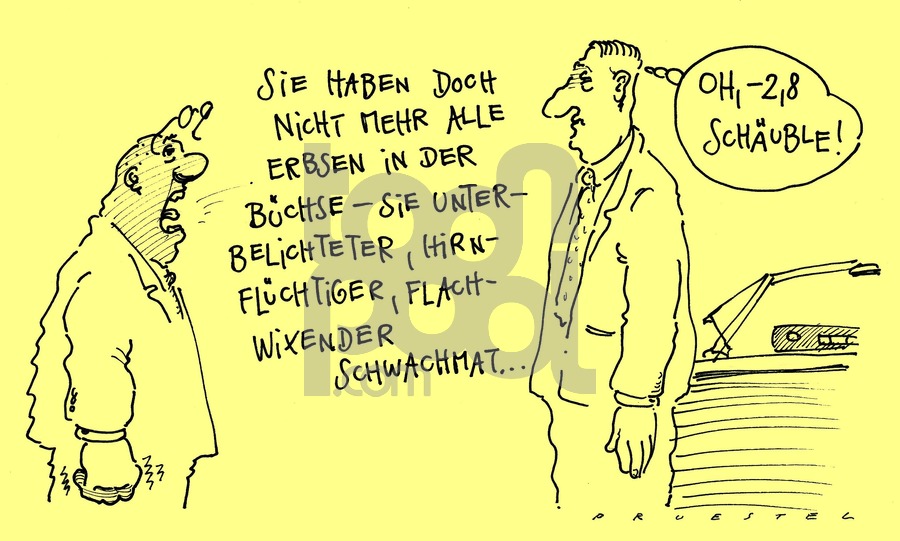 SIE HABEN DOCH
NICHT MEHR ALLE
ERBSEN IN DER
BÜCHSE – SIE UNTER-
BELICHTETER, HIRN-
FLÜCHTIGER, FLACH-
WIXENDER
SCHWACHMAT...
OH, -2,8
SCHÄUBLE!
toon
pool
.com
PRUESTEL